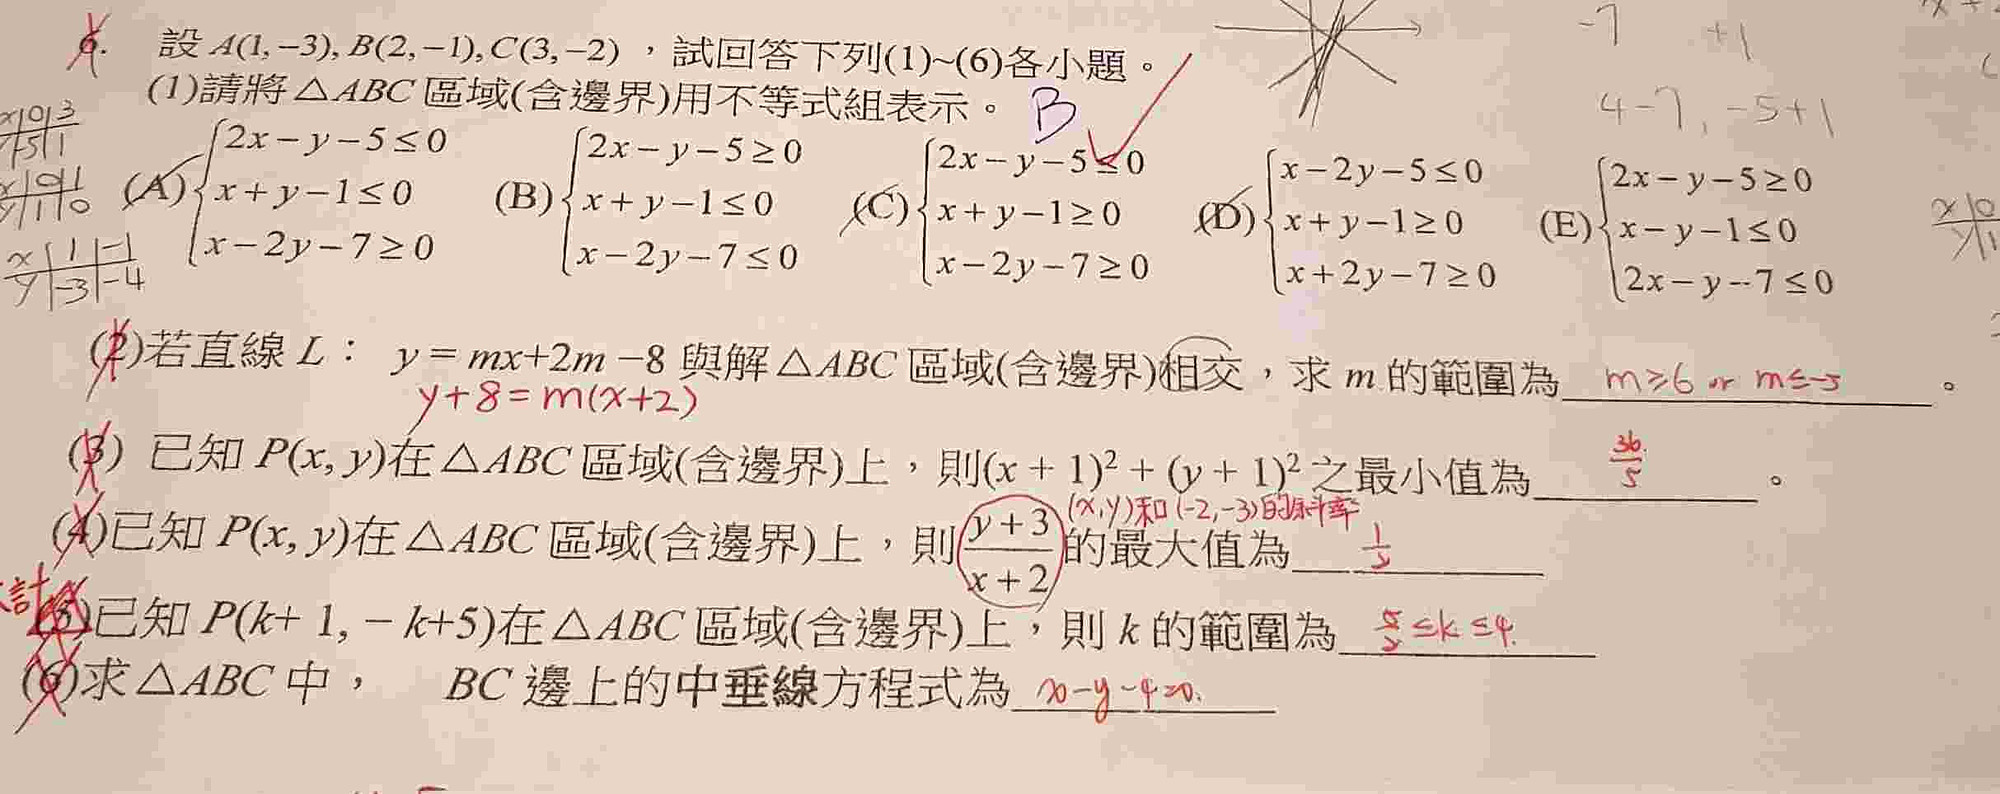 6. 設 A(1, −3), B(2, −1), C(3, −2) ，試回答下列(1)~(6)各小題。
(1)請將 △ABC 區域(含邊界)用不等式組表示。 B
(A) { 2x − y − 5 ≤ 0 x + y − 1 ≤ 0 x − 2y − 7 ≥ 0 (B) { 2x − y − 5 ≥ 0 x + y − 1 ≤ 0 x − 2y − 7 ≤ 0 (C) { 2x − y − 5 ≤ 0 x + y − 1 ≥ 0 x − 2y − 7 ≥ 0 (D) { x − 2y − 5 ≤ 0 x + y − 1 ≥ 0 x + 2y − 7 ≥ 0 (E) { 2x − y − 5 ≥ 0 x − y − 1 ≤ 0 2x − y − 7 ≤ 0
(2)若直線 L： y = mx+2m −8 與解 △ABC 區域(含邊界)相交，求 m 的範圍為 m≥6 or m≤-3 。
y+8=m(x+2)
(3) 已知 P(x, y)在 △ABC 區域(含邊界)上，則(x + 1)² + (y + 1)² 之最小值為 36/5 。
(x,y)和(-2,-3)的斜率
(4)已知 P(x, y)在 △ABC 區域(含邊界)上，則 y + 3 / x + 2 的最大值為
(5)已知 P(k+ 1, − k+5)在 △ABC 區域(含邊界)上，則 k 的範圍為 ≤k≤4.
(6)求 △ABC 中， BC 邊上的中垂線方程式為 x-y-4=0.
-7 +1
4-7, -5+1
x 0 3
y -5 1
x 0 1
y 1 0
x 1 -1
y -3 -4